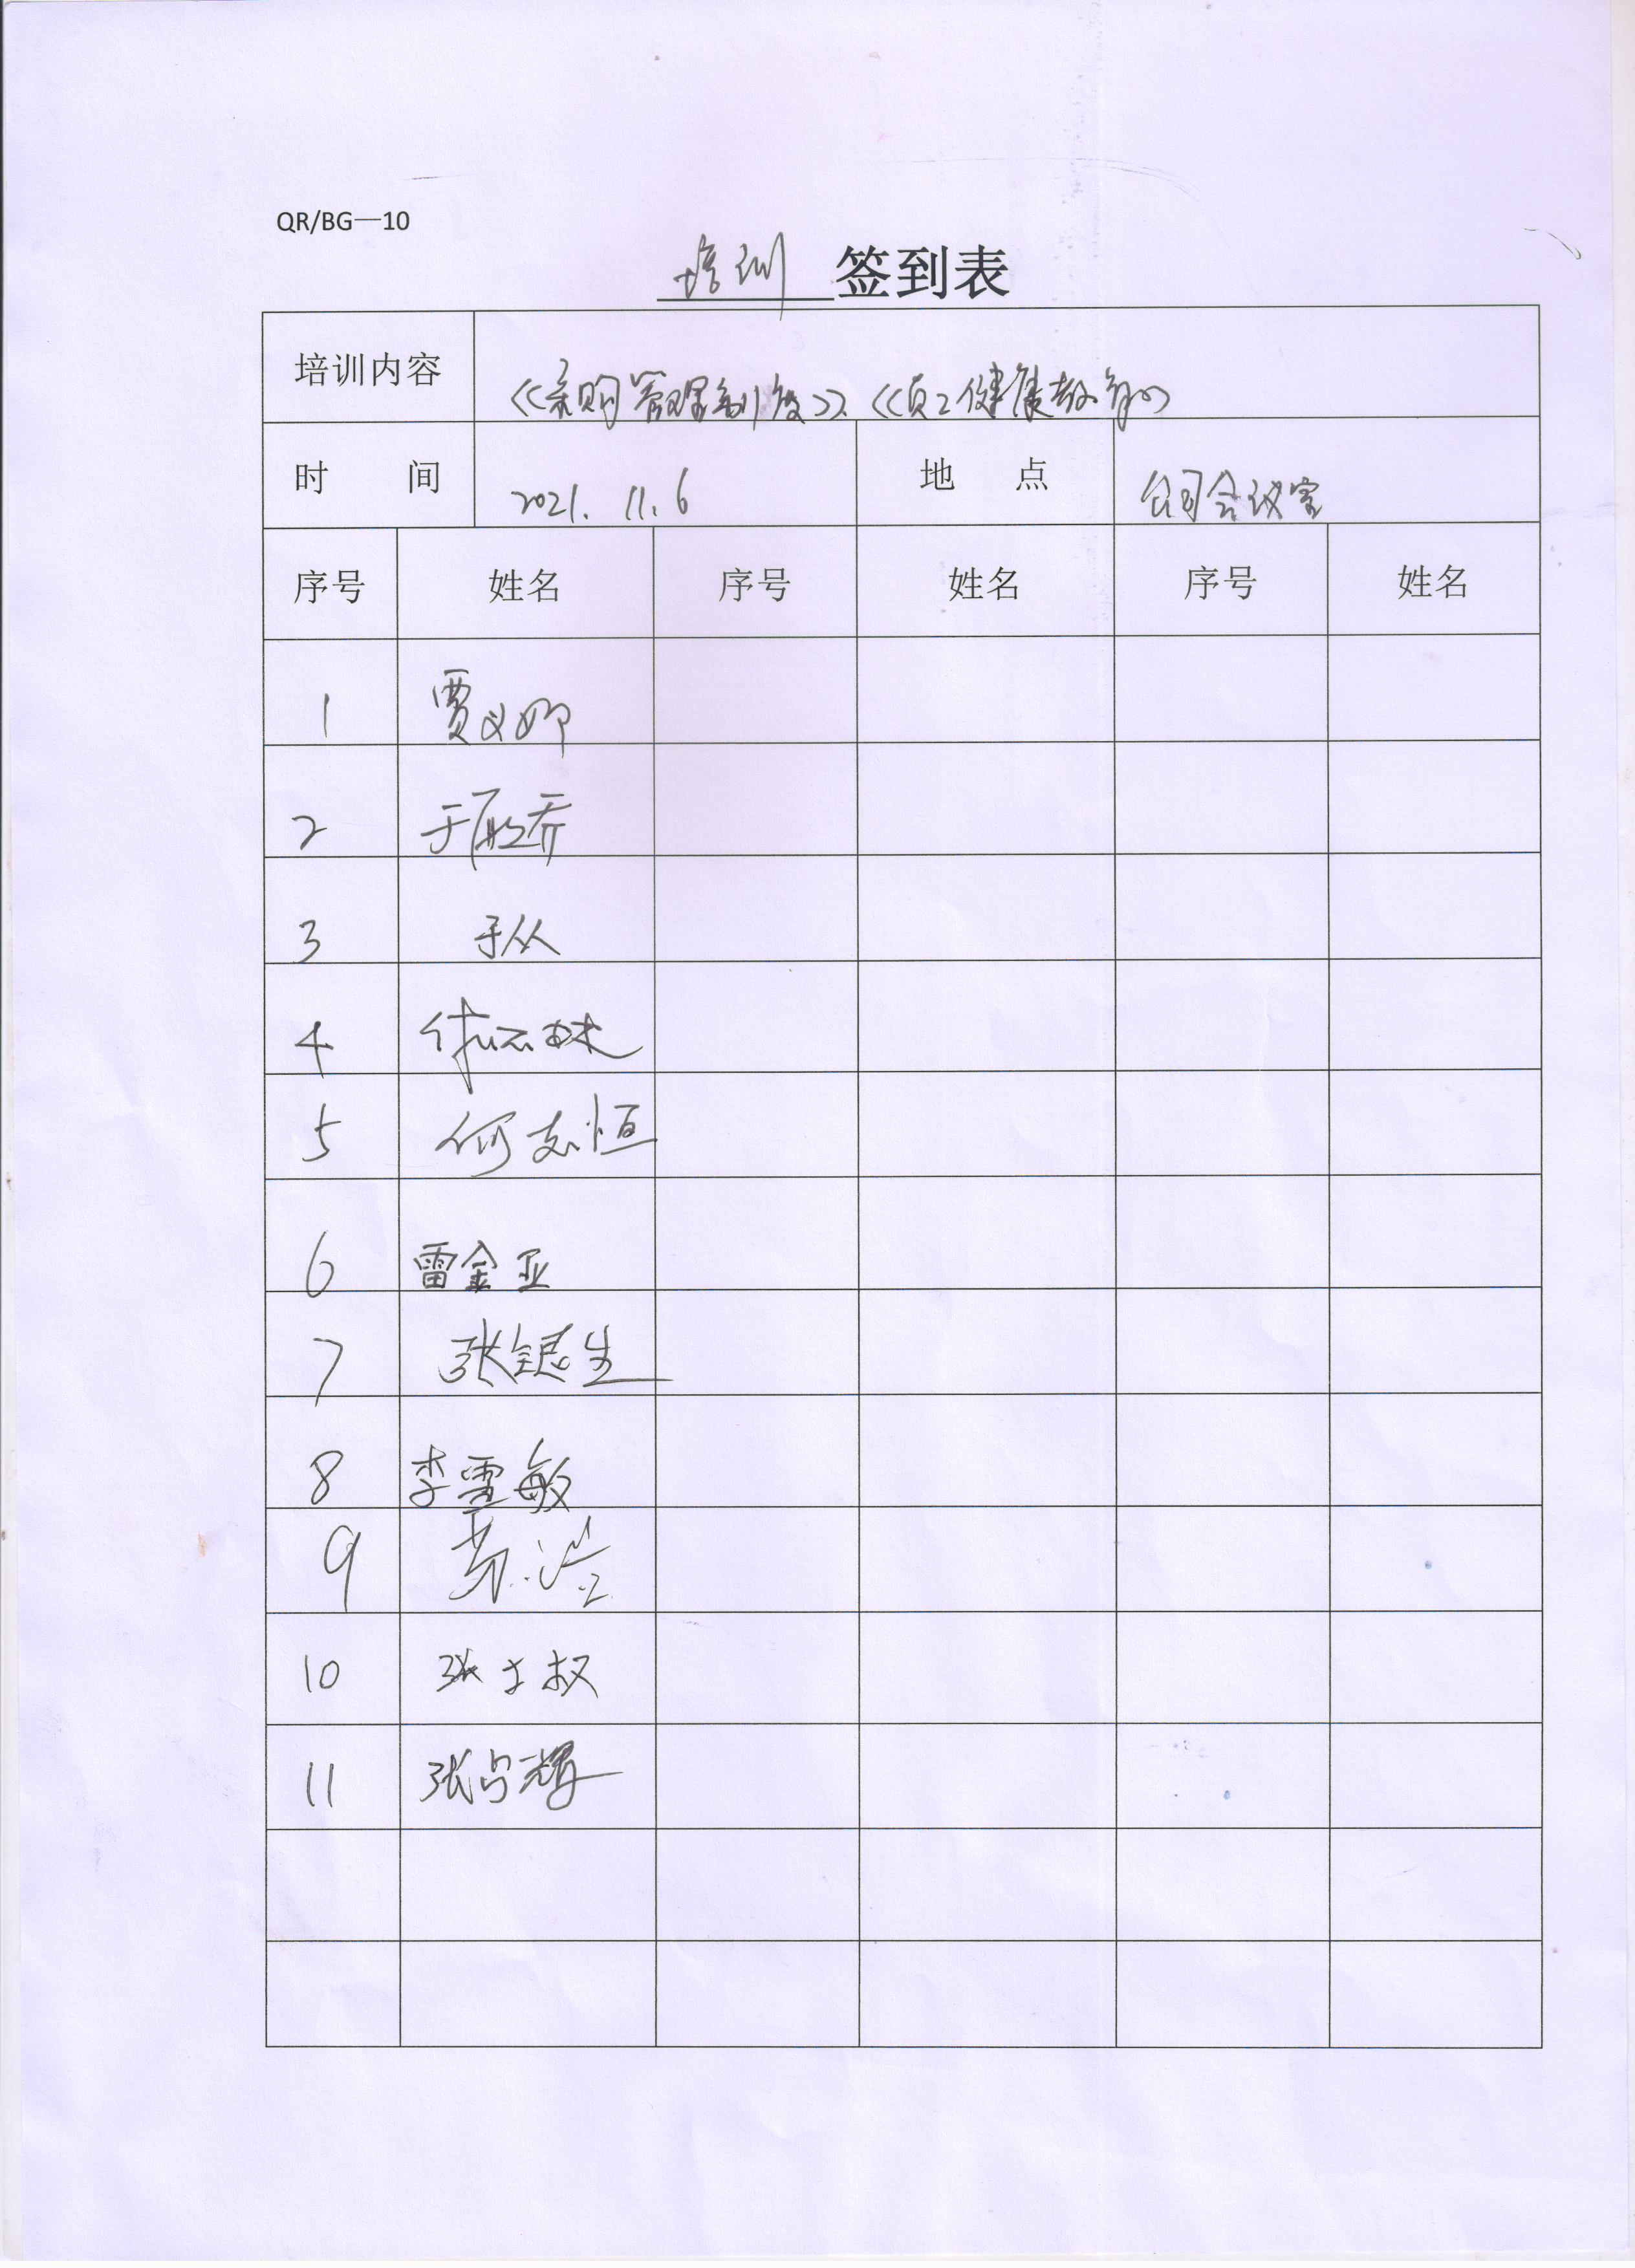 QR/BG—10
培训 签到表
培训内容 《采购管理制度》、《员工健康教育》
时 间 2021.11.6 地 点 公司会议室
序号 姓名 序号 姓名 序号 姓名
1 贾文娜
2 于殿乔
3 于从
4
5 何志恒
6 雷金亚
7 张银生
8 李雪敏
9
10 张士权
11 张占辉